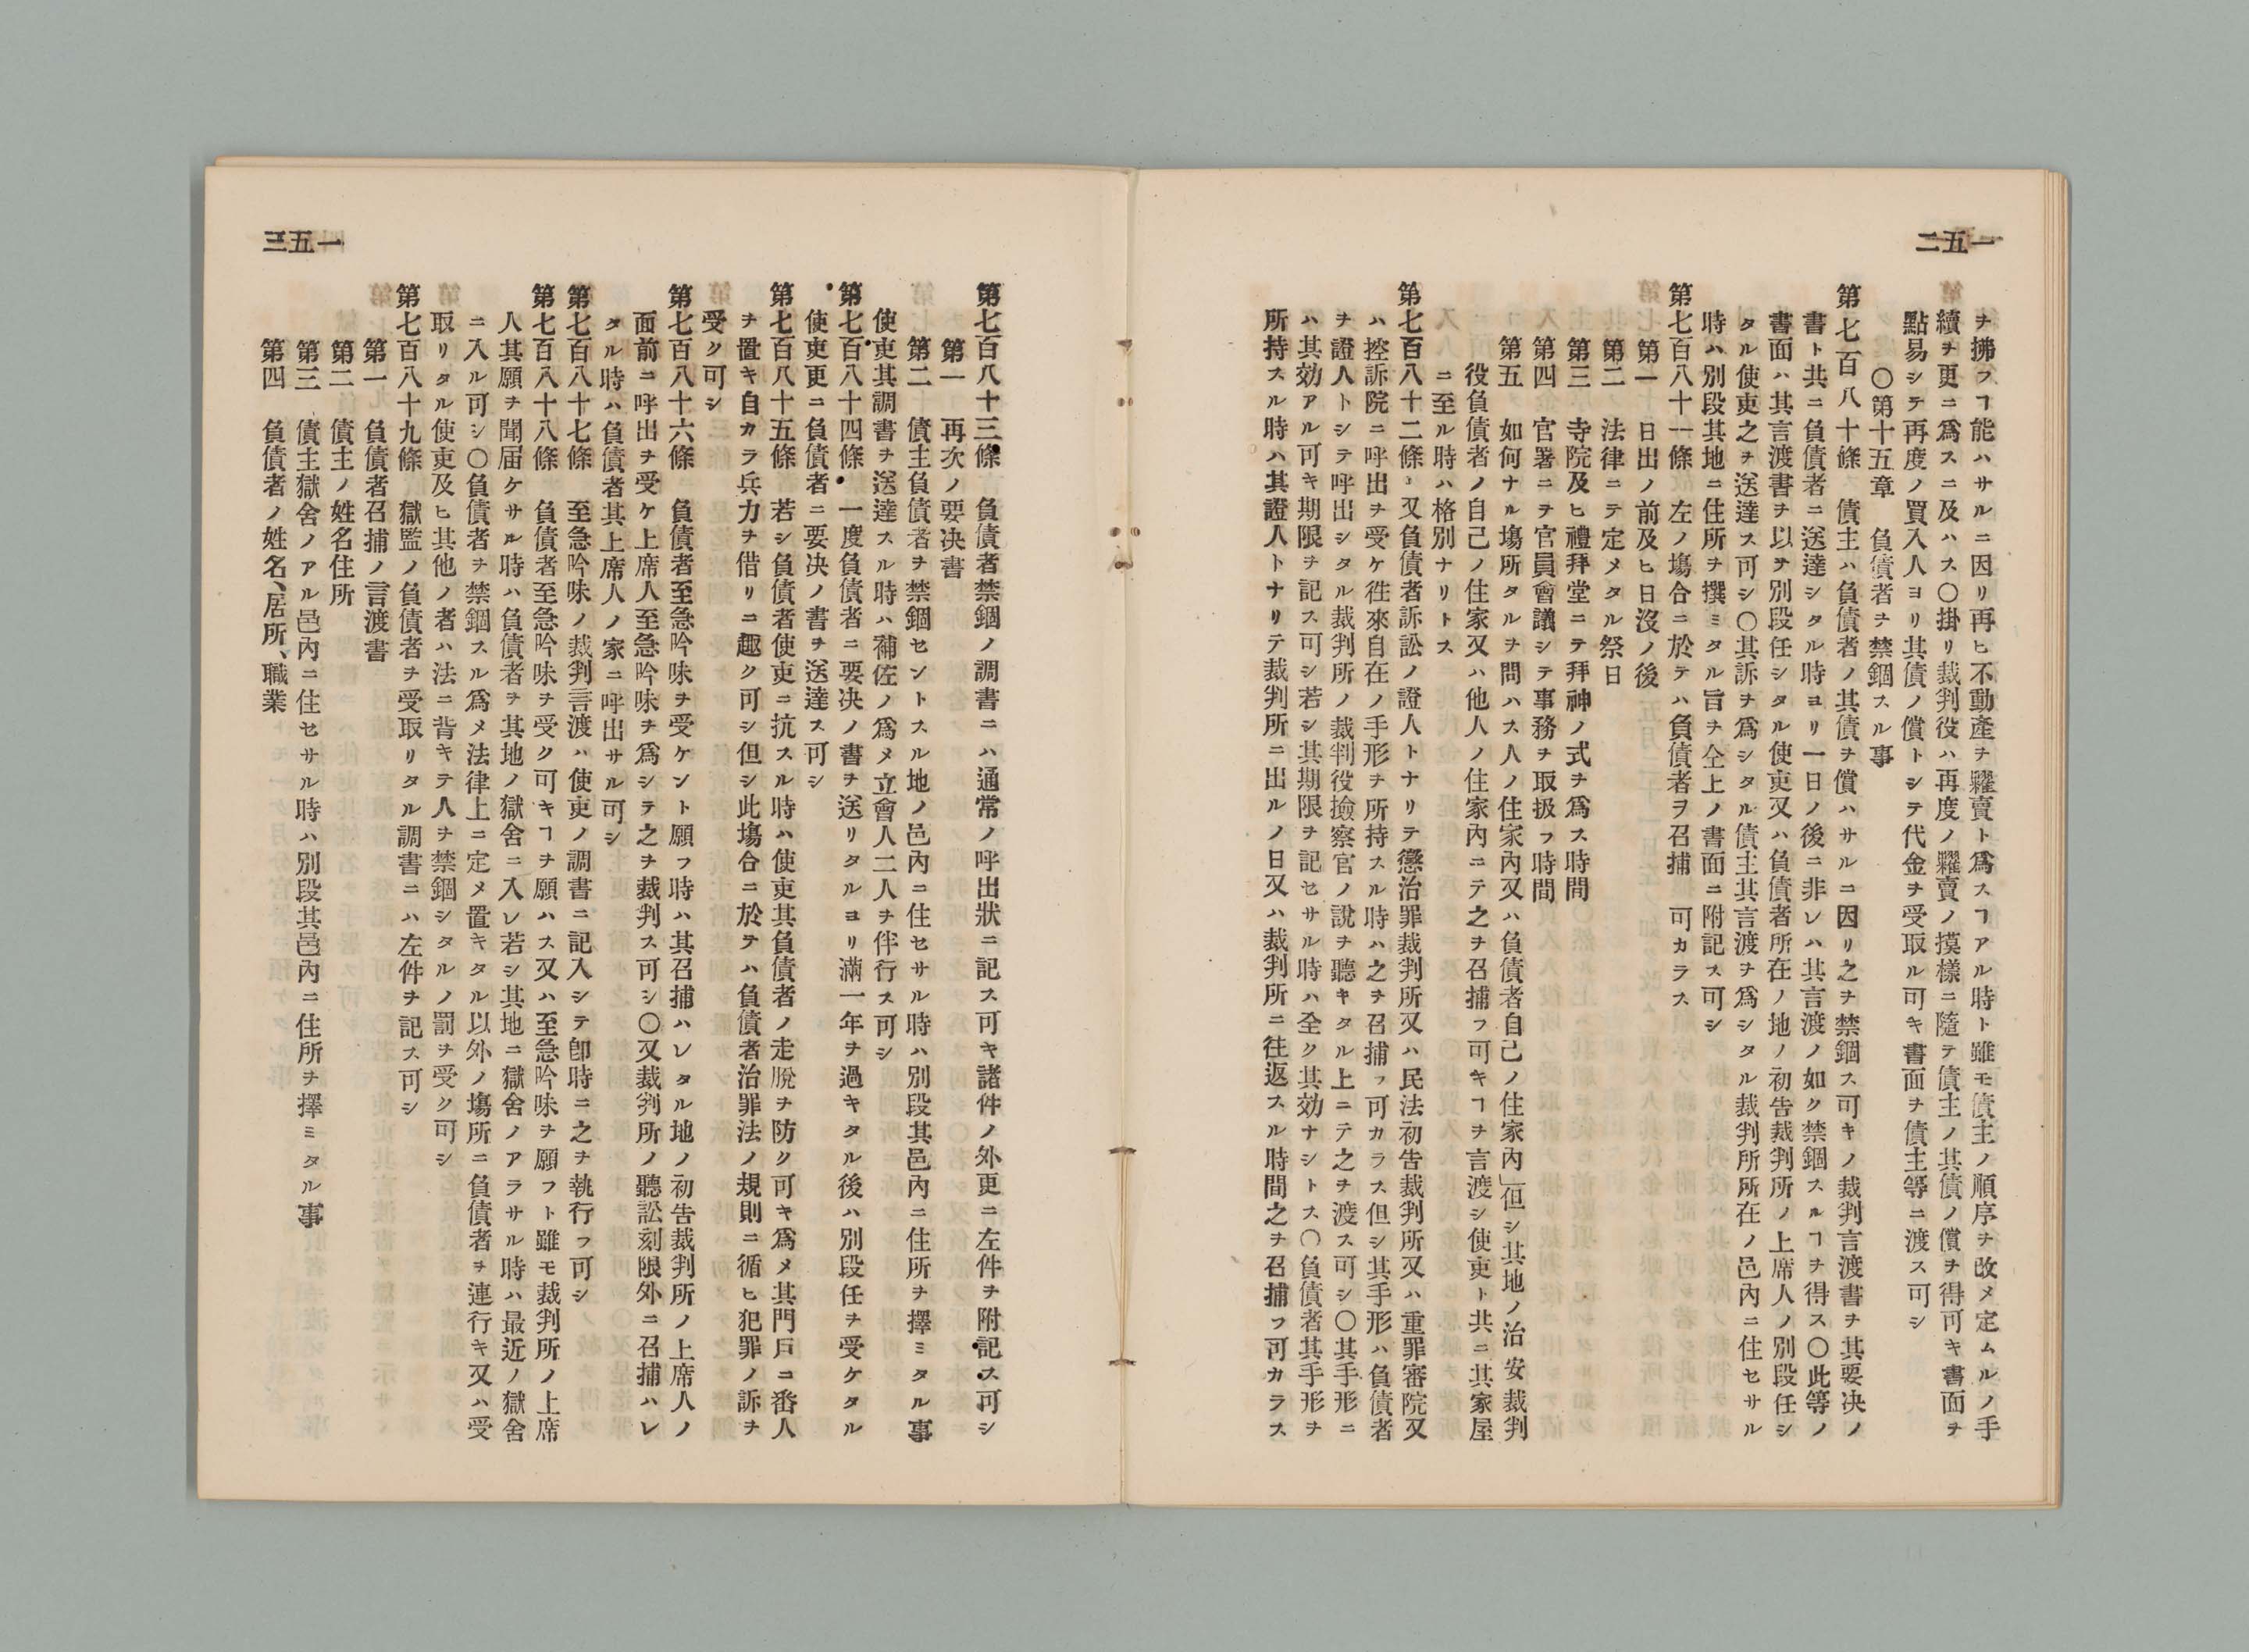 一五二
ヲ拂フヿ能ハサルニ因リ再ヒ不動產ヲ糶賣ト爲スヿアル時ト雖モ債主ノ順序ヲ改メ定ムルノ手
續ヲ更ニ爲スニ及ハス〇掛リ裁判役ハ再度ノ糶賣ノ摸樣ニ隨テ債主ノ其債ノ償ヲ得可キ書面ヲ
點易シテ再度ノ買入人ヨリ其債ノ償トシテ代金ヲ受取ル可キ書面ヲ債主等ニ渡ス可シ
〇第十五章 負債者ヲ禁錮スル事
第七百八十條 債主ハ負債者ノ其債ヲ償ハサルニ因リ之ヲ禁錮ス可キノ裁判言渡書ヲ其要决ノ
書ト共ニ負債者ニ送達シタル時ヨリ一日ノ後ニ非レハ其言渡ノ如ク禁錮スルヿヲ得ス〇此等ノ
書面ハ其言渡書ヲ以テ別段任シタル使吏又ハ負債者所在ノ地ノ初告裁判所ノ上席人ノ別段任シ
タル使吏之ヲ送達ス可シ〇其訴ヲ爲シタル債主其言渡ヲ爲シタル裁判所所在ノ邑內ニ住セサル
時ハ別段其地ニ住所ヲ撰ミタル旨ヲ仝上ノ書面ニ附記ス可シ
第七百八十一條 左ノ塲合ニ於テハ負債者ヲ召捕 可カラス
第一 日出ノ前及ヒ日沒ノ後
第二 法律ニテ定メタル祭日
第三 寺院及ヒ禮拜堂ニテ拜神ノ式ヲ爲ス時間
第四 官署ニヲ官員會議シテ事務ヲ取扱フ時間
第五 如何ナル塲所タルヲ問ハス人ノ住家內又ハ負債者自己ノ住家內」但シ其地ノ治安裁判
役負債者ノ自己ノ住家又ハ他人ノ住家內ニテ之ヲ召捕フ可キヿヲ言渡シ使吏ト共ニ其家屋
ニ至ル時ハ格別ナリトス
第七百八十二條 又負債者訴訟ノ證人トナリテ懲治罪裁判所又ハ民法初告裁判所又ハ重罪審院又
ハ控訴院ニ呼出ヲ受ケ徃來自在ノ手形ヲ所持スル時ハ之ヲ召捕フ可カラス但シ其手形ハ負債者
ヲ證人トシテ呼出シタル裁判所ノ裁判役撿察官ノ說ヲ聽キタル上ニテ之ヲ渡ス可シ〇其手形ニ
ハ其効アル可キ期限ヲ記ス可シ若シ其期限ヲ記セサル時ハ全ク其効ナシトス〇負債者其手形ヲ
所持スル時ハ其證人トナリテ裁判所ニ出ルノ日又ハ裁判所ニ往返スル時間之ヲ召捕フ可カラス
一五三
第七百八十三條 負債者禁錮ノ調書ニハ通常ノ呼出狀ニ記ス可キ諸件ノ外更ニ左件ヲ附記ス可シ
第一 再次ノ要决書
第二 債主負債者ヲ禁錮セントスル地ノ邑內ニ住セサル時ハ別段其邑內ニ住所ヲ擇ミタル事
使吏其調書ヲ送達スル時ハ補佐ノ爲メ立會人二人ヲ伴行ス可シ
第七百八十四條 一度負債者ニ要决ノ書ヲ送リタルヨリ滿一年ヲ過キタル後ハ別段任ヲ受ケタル
使吏更ニ負債者ニ要决ノ書ヲ送達ス可シ
第七百八十五條 若シ負債者使吏ニ抗スル時ハ使吏其負債者ノ走脫ヲ防ク可キ爲メ其門戶ニ番人
ヲ置キ自カラ兵力ヲ借リニ趣ク可シ但シ此塲合ニ於テハ負債者治罪法ノ規則ニ循ヒ犯罪ノ訴ヲ
受ク可シ
第七百八十六條 負債者至急吟味ヲ受ケント願フ時ハ其召捕ハレタル地ノ初告裁判所ノ上席人ノ
面前ニ呼出ヲ受ケ上席人至急吟味ヲ爲シテ之ヲ裁判ス可シ〇又裁判所ノ聽訟刻限外ニ召捕ハレ
タル時ハ負債者其上席人ノ家ニ呼出サル可シ
第七百八十七條 至急吟味ノ裁判言渡ハ使吏ノ調書ニ記入シテ卽時ニ之ヲ執行フ可シ
第七百八十八條 負債者至急吟味ヲ受ク可キヿヲ願ハス又ハ至急吟味ヲ願フト雖モ裁判所ノ上席
人其願ヲ聞届ケサル時ハ負債者ヲ其地ノ獄舍ニ入レ若シ其地ニ獄舍ノアラサル時ハ最近ノ獄舍
ニ入ル可シ〇負債者ヲ禁錮スル爲メ法律上ニ定メ置キタル以外ノ塲所ニ負債者ヲ連行キ又ハ受
取リタル使吏及ヒ其他ノ者ハ法ニ背キテ人ヲ禁錮シタルノ罰ヲ受ク可シ
第七百八十九條 獄監ノ負債者ヲ受取リタル調書ニハ左件ヲ記ス可シ
第一 負債者召捕ノ言渡書
第二 債主ノ姓名住所
第三 債主獄舍ノアル邑內ニ住セサル時ハ別段其邑內ニ住所ヲ擇ミタル事
第四 負債者ノ姓名、居所、職業